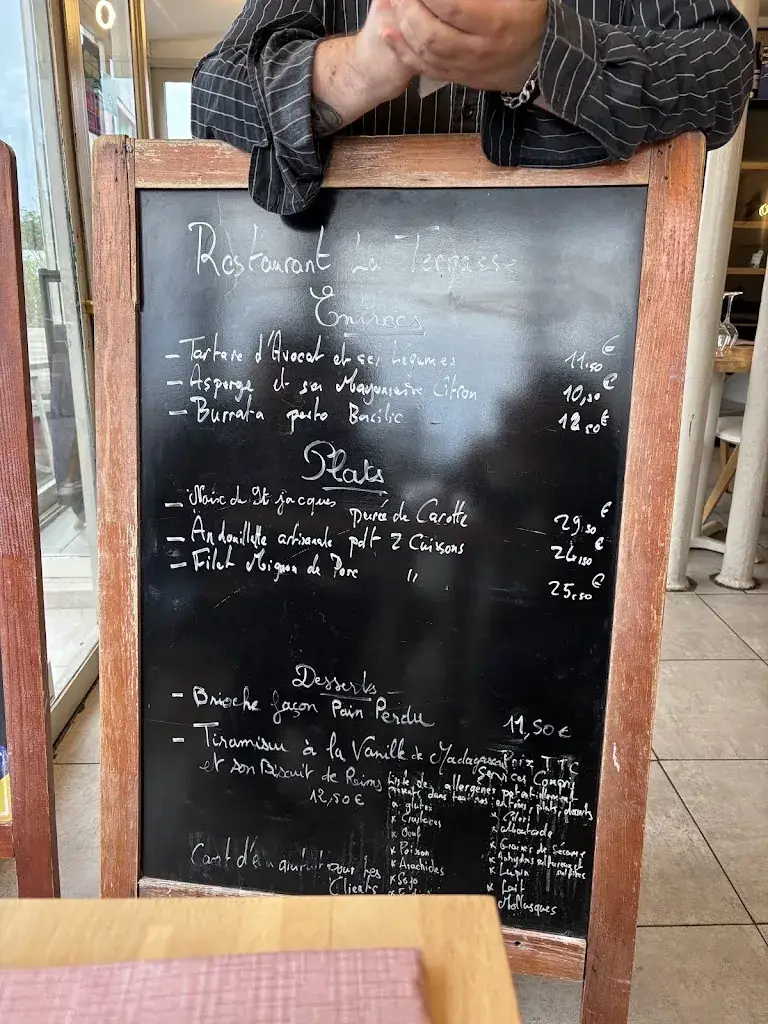 Restaurant La Terrasse
Entrées
- Tartare d'Avocat et ses Légumes 11,50 €
- Asperge et sa Mayonnaise Citron 10,50 €
- Burrata pesto Basilic 12,50 €
Plats
- Noix de St jacques purée de Carotte 29,50 €
- Andouillette artisanale pdt 2 Cuissons 24,50 €
- Filet Mignon de Porc " 25,50 €
Desserts
- Brioche façon Pain Perdu 11,50 €
- Tiramisu à la Vanille de Madagascar
et son Biscuit de Reims
12,50 €
Prix TTC
Services Compris
Liste des allergènes potentiellement
présents dans tous nos entrées, plats, desserts
x gluten
x Crustacés
x Oeuf
x Poisson
x Arachides
x Soja
x Céleri
x Moutarde
x Graines de Sésame
x Anhydride sulfureux et sulfites
x Lupin
x Lait
x Mollusques
Clients